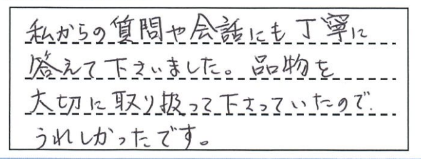 私からの質問や会話にも丁寧に
答えて下さいました。品物を
大切に取り扱って下さっていたので、
うれしかったです。